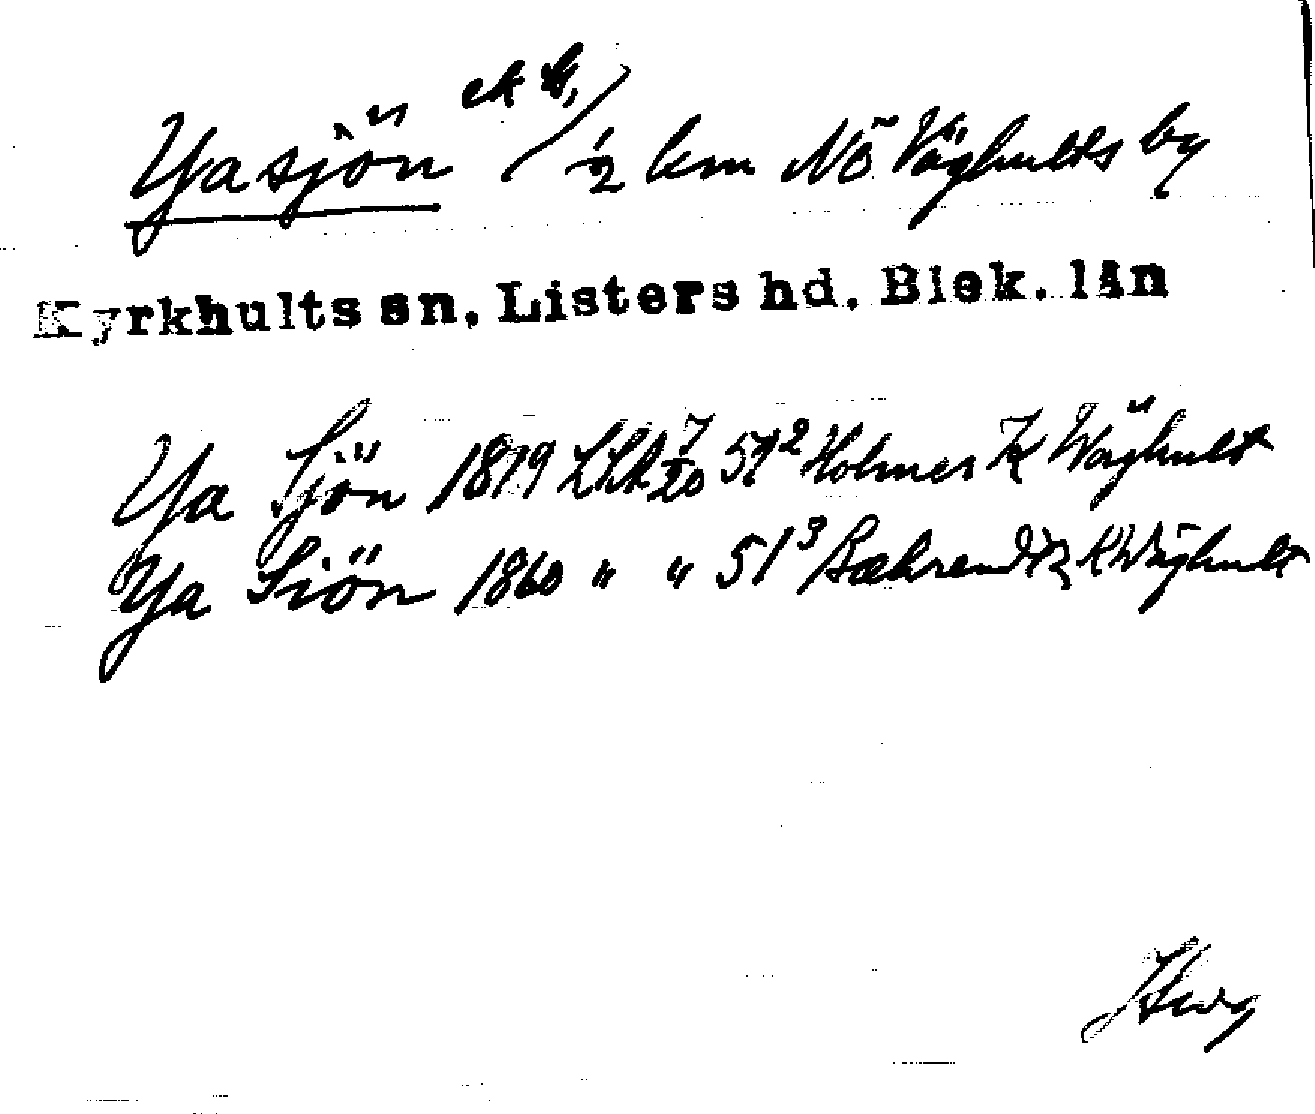 Yasjön ek bl, ½ km NÖ Väghults by
Kyrkhults sn, Listers hd, Blek. län
Ya Sjön 1819 LSA 7/20 51² Holmer K Wäghult
Ya Siön 1860 " " 51³ Baehrendtz K Wäghult